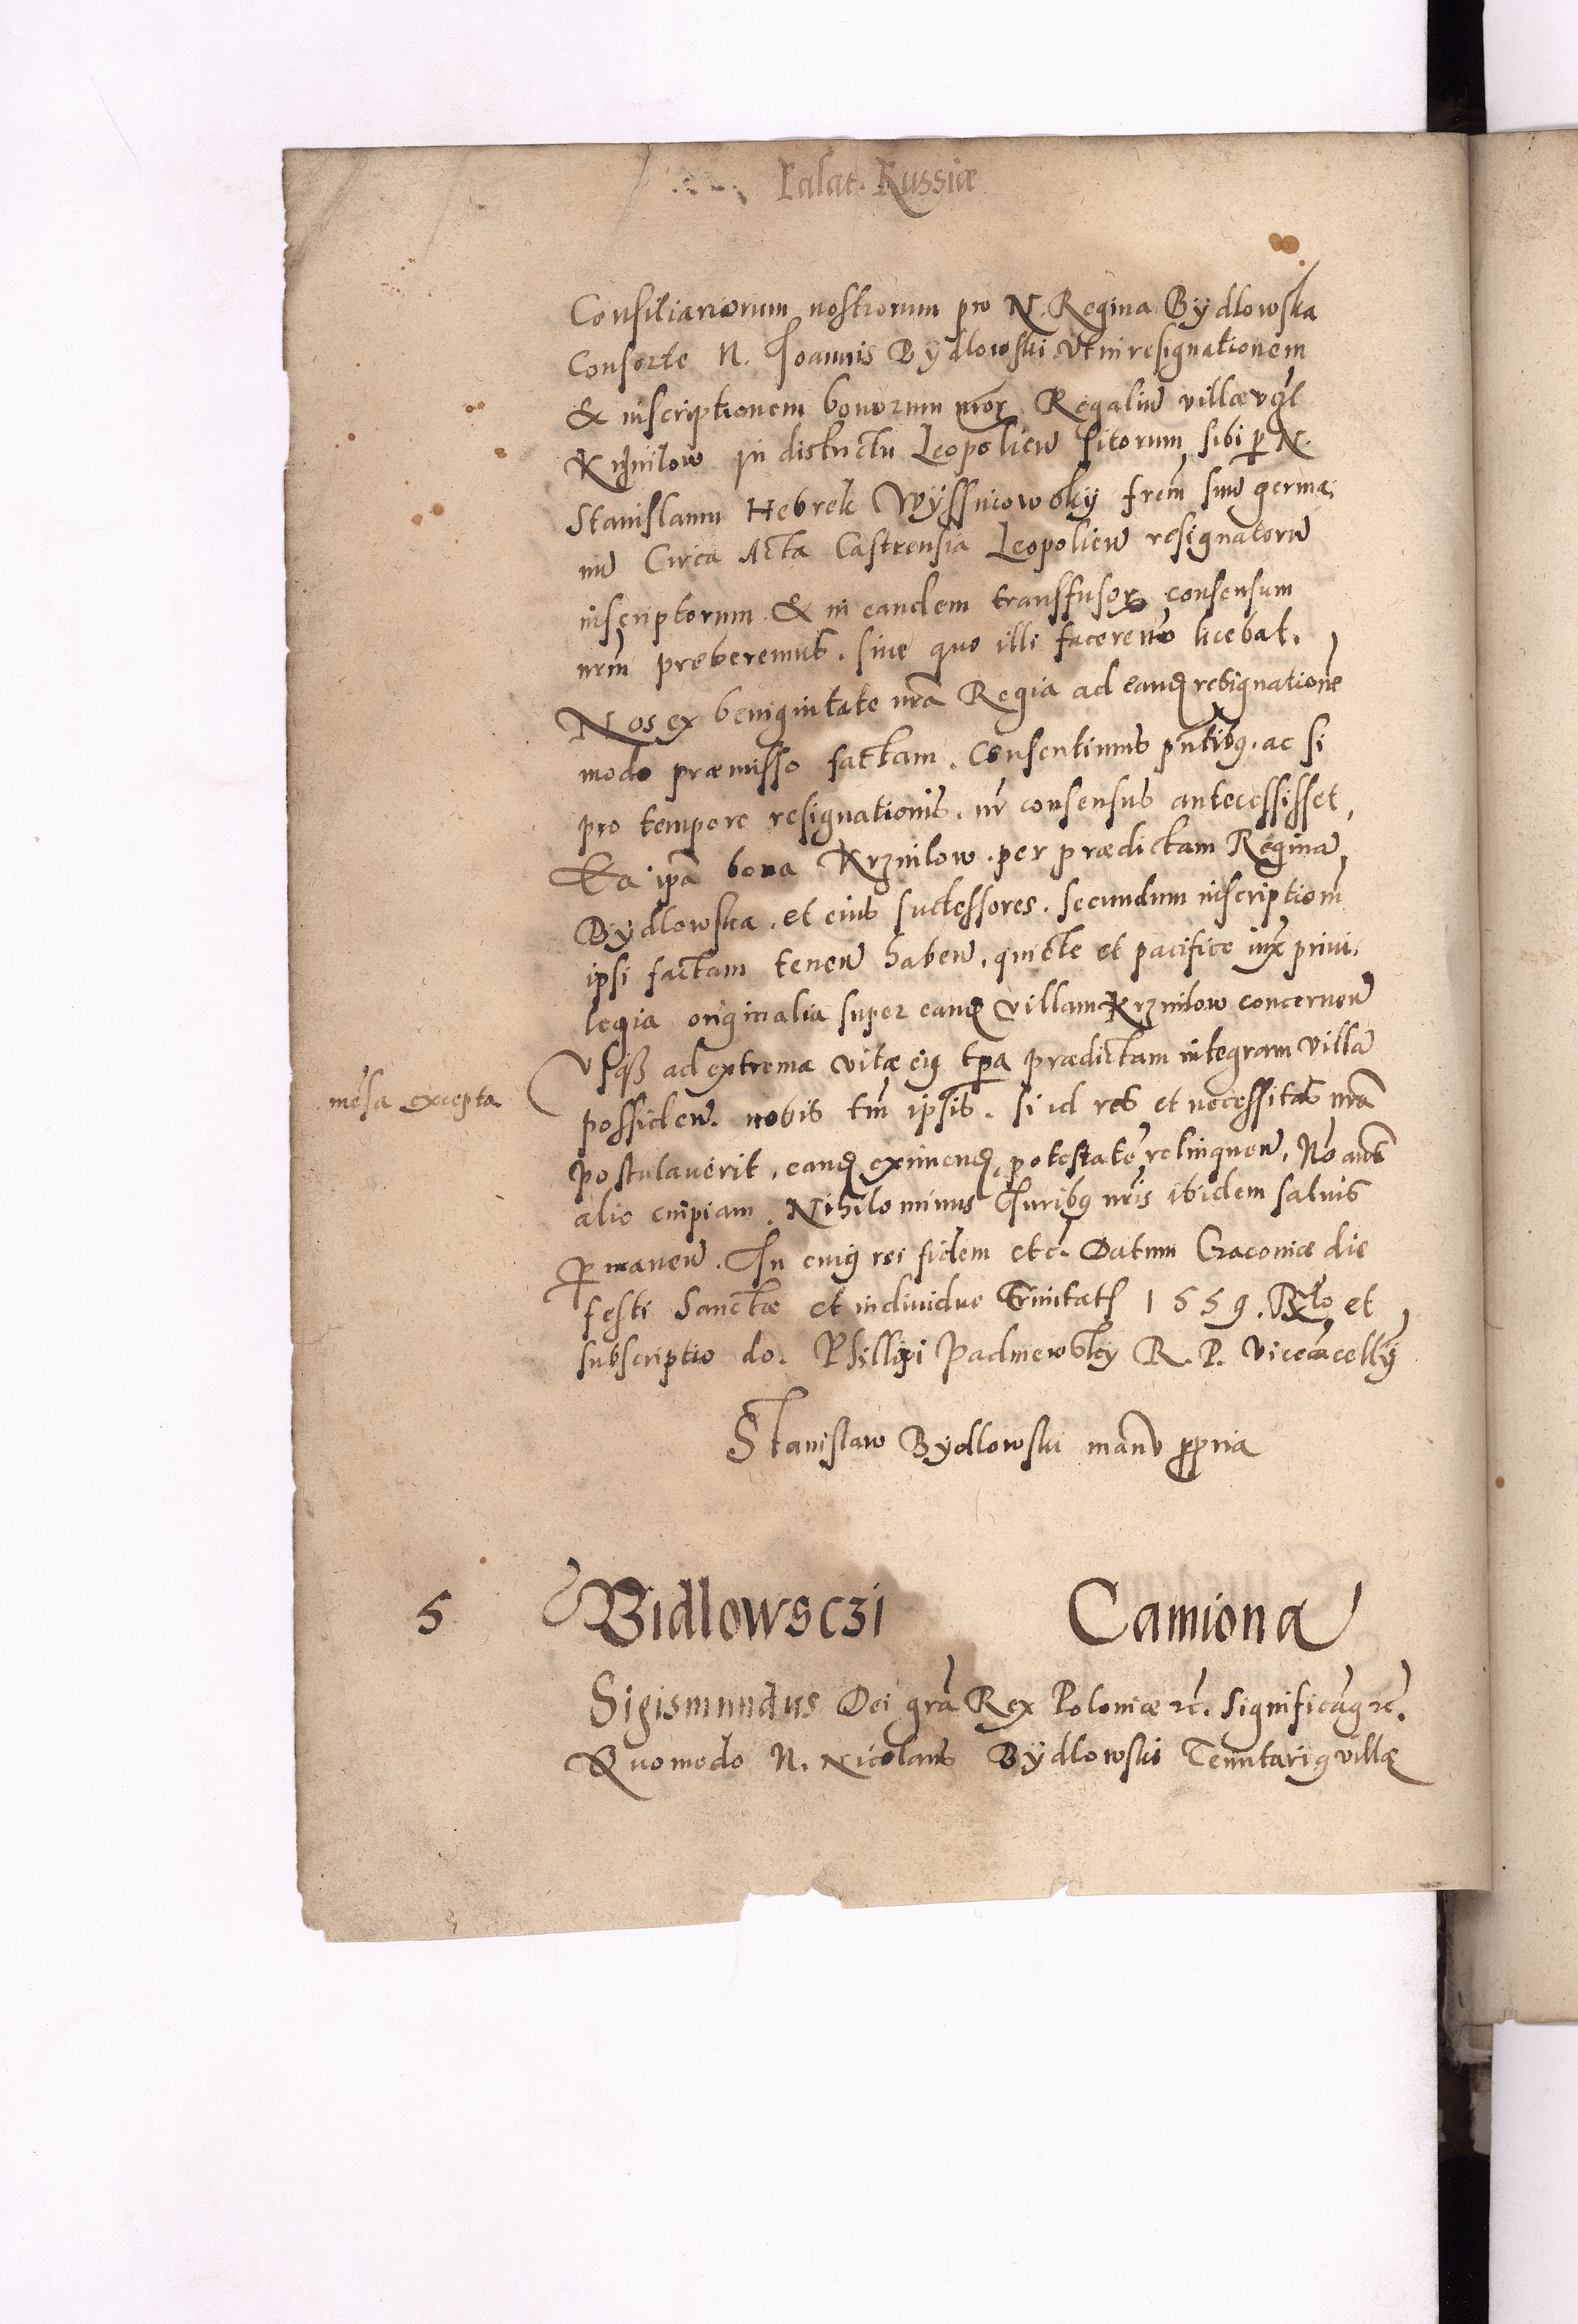 Palat. Russiæ
Consiliariorum nostrorum pro N. Regina Bydlowska
Consorte N. Joannis Bydlowski vt in resignationem
& inscriptionem bonorum nror Regaliu villæ vgl
Krznilow in districtu Leopolien sitorum, sibi p N.
Stanislaum Hebrek Wyssniowsky frem suu germa,
nu Circa Acta Castrensia Leopolien resignatoru
inscriptorum & in eandem transfusor, consensum
nrm præberemus. sine quo illi facere no licebat.
Nos ex benignitate nra Regia ad eand resignatione
modo præmisso factam. Consentimus pntibq. ac si
pro tempore resignationis. nr consensus antecessisset,
Ea ipa bona Krznilow. per prædictam Regina
Bydlowska. et eius successores. secundum inscriptiom
ipsi factam tenen haben, quiete et pacifice iux privi,
legia originalia super eand villam Krznilow concernen
Vsq ad extrema vitæ eiq tpa prædictam integram villa
mesa excepta
possiden. nobis tm ipsis. si id res et necessitas nra
postulauerit, eand eximend, potestate relinquen. No aut
alio cuipiam. Nihilominus Juribq nris ibidem saluis
pmanen. In cuiq rei fidem etc. Datum Cracoviæ die
festi Sanctæ et individuæ Trinitats 1559. Rlo et
subscriptio do. Phillipi Padnewsky R. P. Vicecacellij
Stanislaw Bydlowski manu ppria
5 Bidlowsczi Camiona
Sigismundus Dei gra Rex Poloniæ rc. Significaq rc.
Quomodo N. Nicolaus Bydlowski Tenutariq villæ